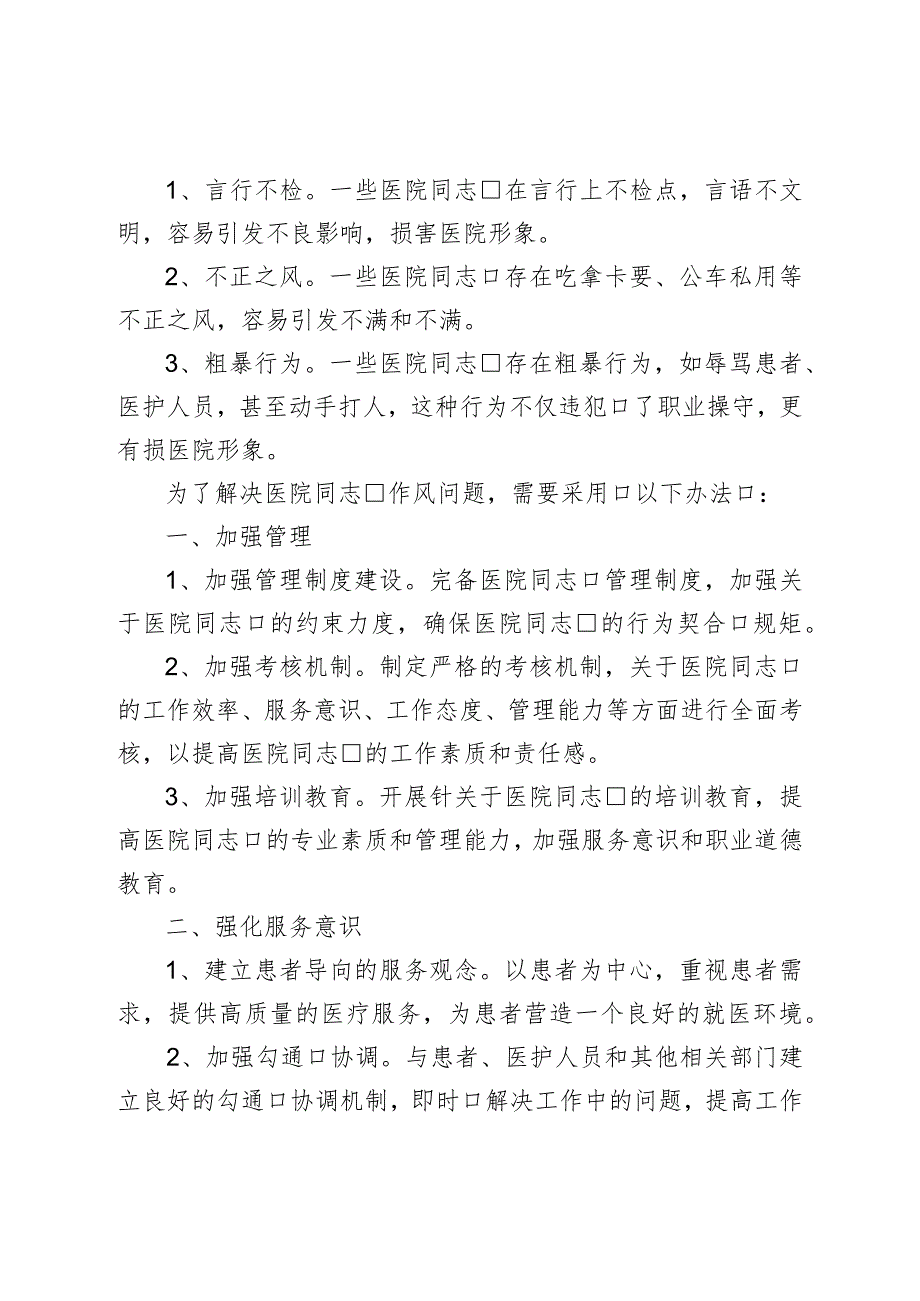 1、言行不检。一些医院同志□在言行上不检点，言语不文
明，容易引发不良影响，损害医院形象。
2、不正之风。一些医院同志口存在吃拿卡要、公车私用等
不正之风，容易引发不满和不满。
3、粗暴行为。一些医院同志□存在粗暴行为，如辱骂患者、
医护人员，甚至动手打人，这种行为不仅违犯口了职业操守，更
有损医院形象。
为了解决医院同志□作风问题，需要采用口以下办法口：
一、加强管理
1、加强管理制度建设。完备医院同志口管理制度，加强关
于医院同志口的约束力度，确保医院同志□的行为契合口规矩。
2、加强考核机制。制定严格的考核机制，关于医院同志口
的工作效率、服务意识、工作态度、管理能力等方面进行全面考
核，以提高医院同志□的工作素质和责任感。
3、加强培训教育。开展针关于医院同志□的培训教育，提
高医院同志口的专业素质和管理能力，加强服务意识和职业道德
教育。
二、强化服务意识
1、建立患者导向的服务观念。以患者为中心，重视患者需
求，提供高质量的医疗服务，为患者营造一个良好的就医环境。
2、加强勾通口协调。与患者、医护人员和其他相关部门建
立良好的勾通口协调机制，即时口解决工作中的问题，提高工作